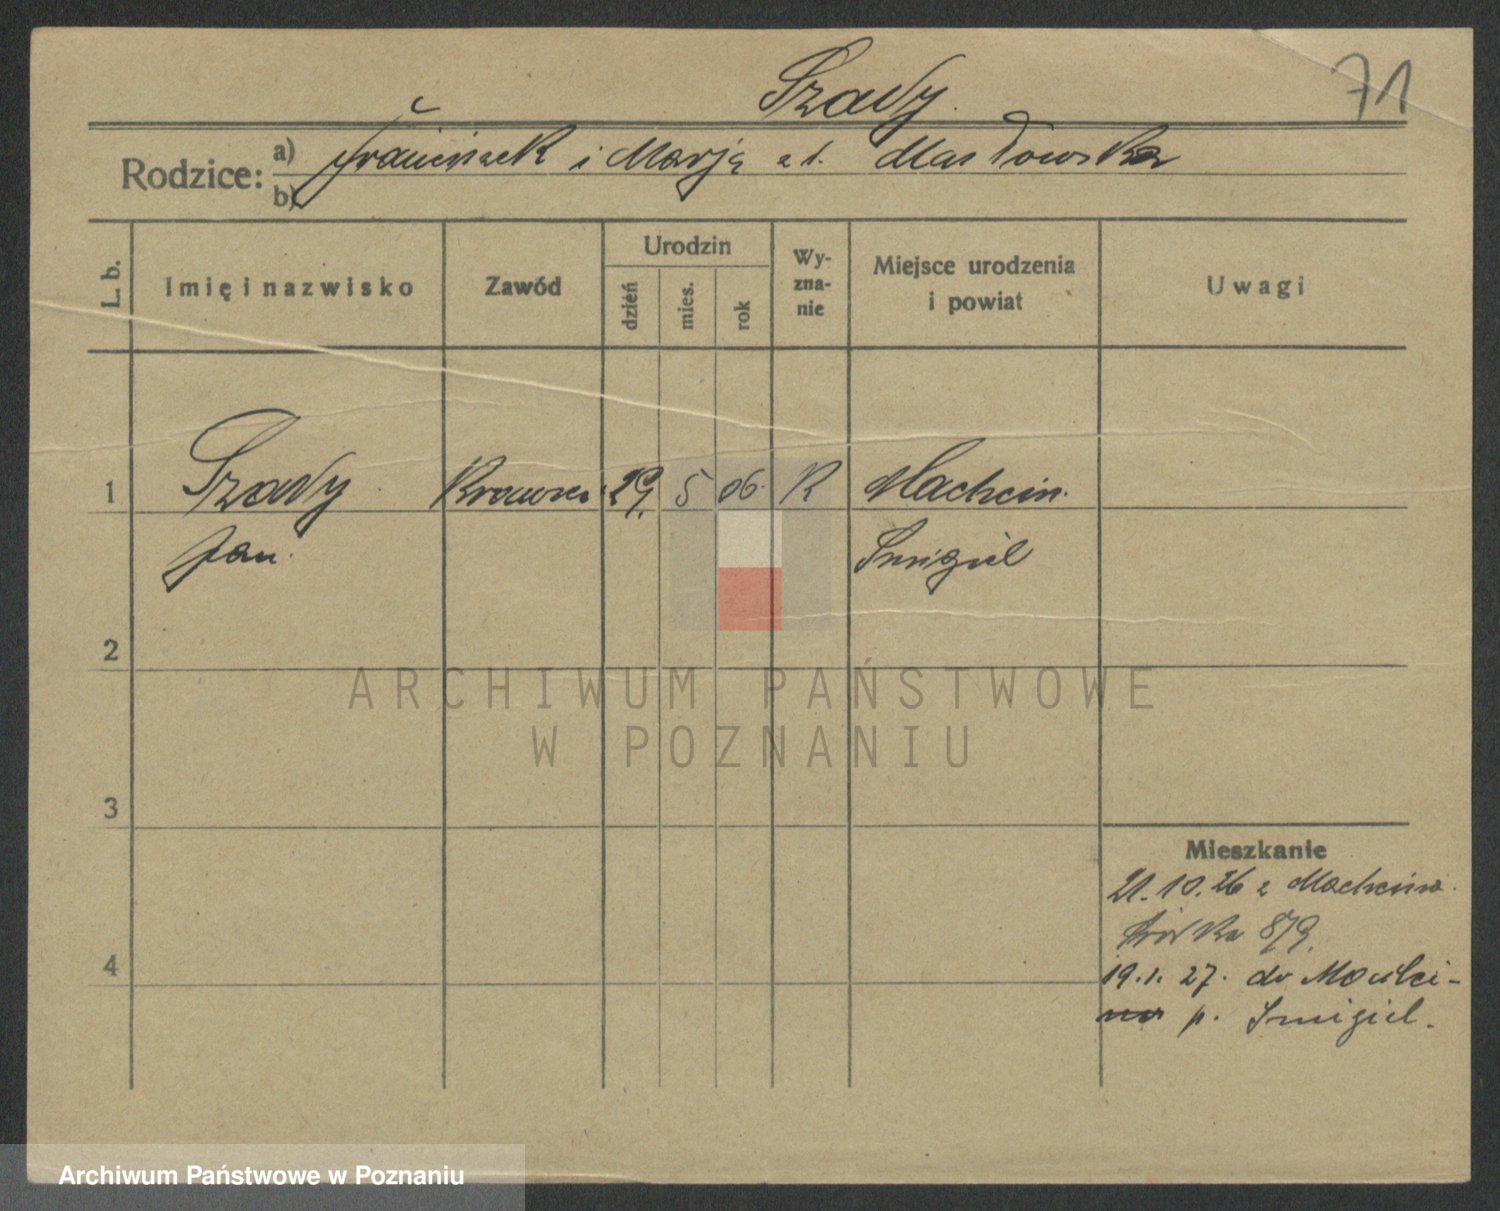 Szady.
71
Rodzice: a) Franciszek i Marja z d. Masłowska
b)
L. b.
Imię i nazwisko
Zawód
Urodzin
dzień
mies.
rok
Wy-
zna-
nie
Miejsce urodzenia
i powiat
Uwagi
1 Szady Krawiec 29. 5 06. R Machcin.
Jan. Śmigiel
2
ARCHIWUM PAŃSTWOWE
W POZNANIU
3
Mieszkanie
21.10.26 z Machcina.
879.
4
19.1.27. do
p. Śmigiel.
Archiwum Państwowe w Poznaniu